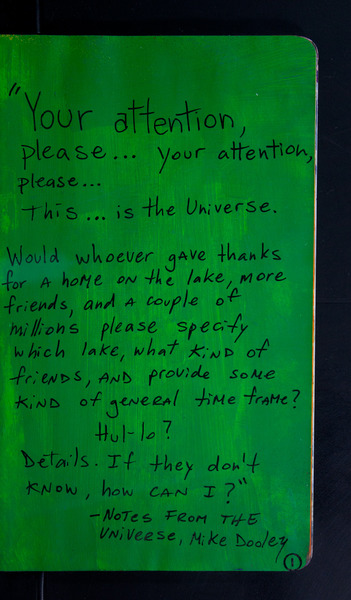 "Your attention,
please... your attention,
please...
This... is the Universe.
Would whoever gave thanks
for a home on the lake, more
friends, and a couple of
millions please specify
which lake, what kind of
friends, and provide some
kind of general time frame?
Hul-lo?
Details. If they don't
know, how can I?"
-Notes from the
Universe, Mike Dooley
1